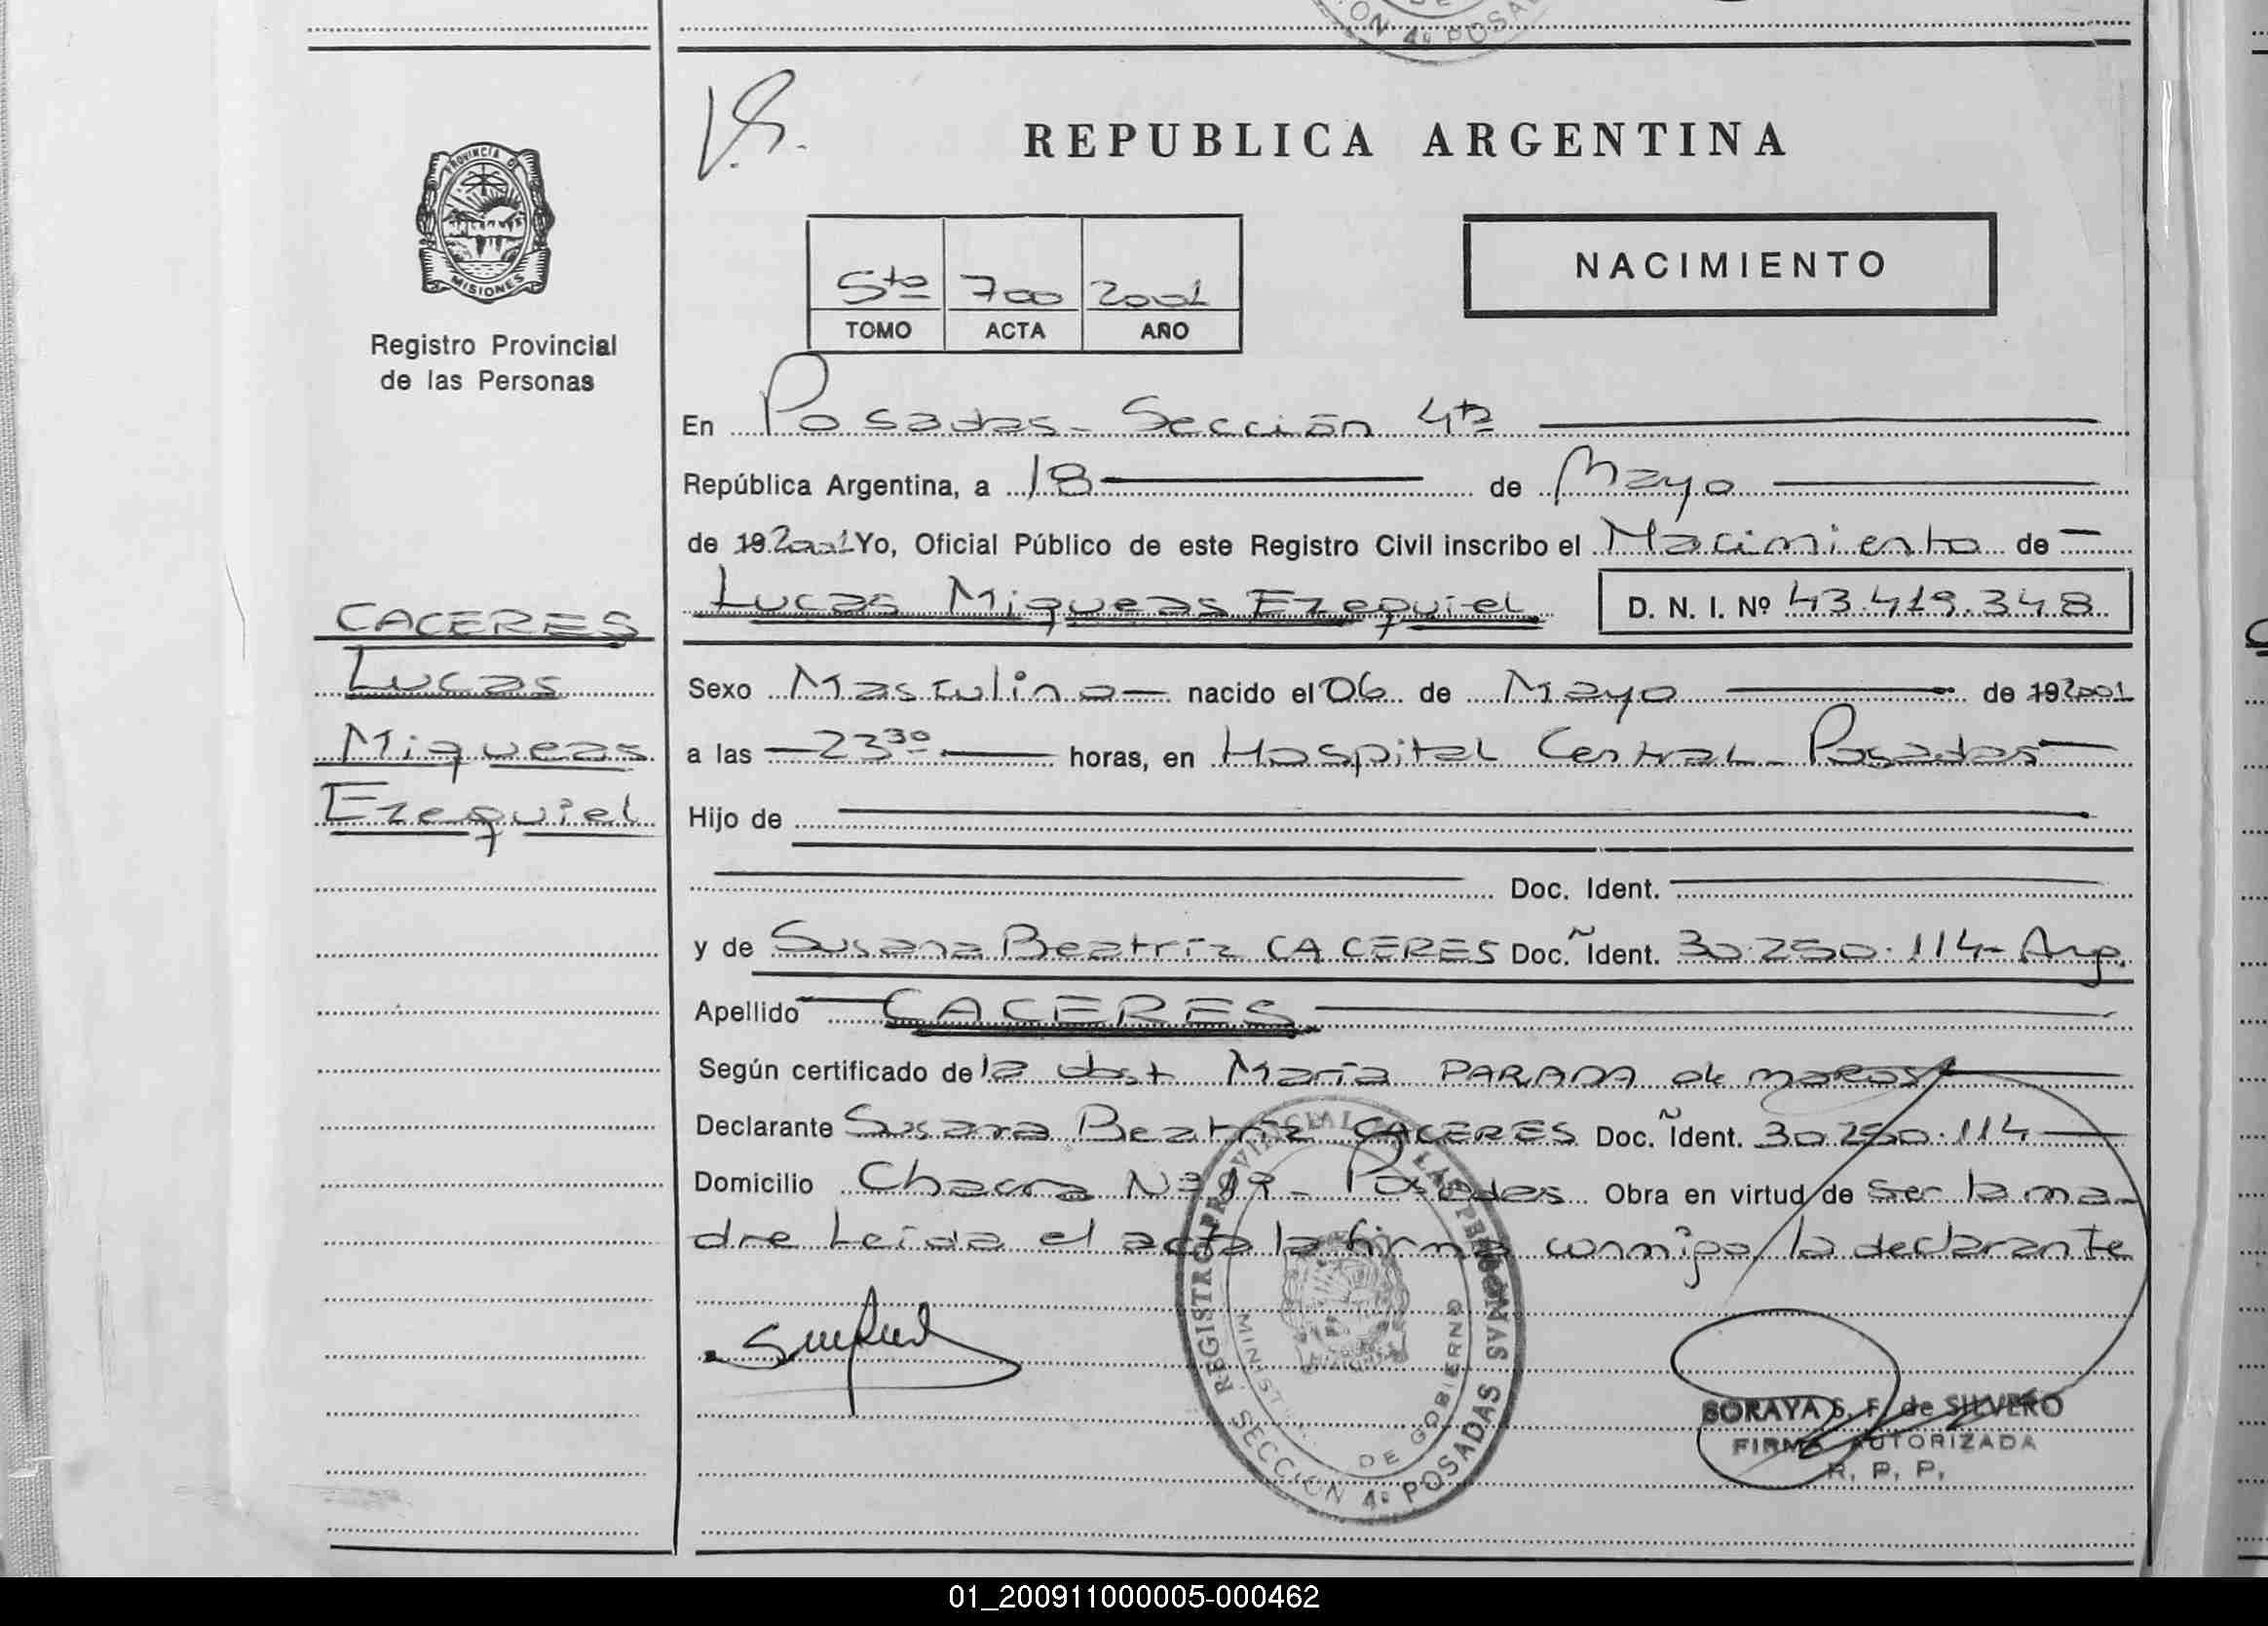 ON 4º POSA
V.S.
REPUBLICA ARGENTINA
PROVINCIA DE
MISIONES
Registro Provincial
de las Personas
5to 700 2001
TOMO ACTA AÑO
NACIMIENTO
En Posadas - Sección 4ta
República Argentina, a 18 de Mayo
de 192001 Yo, Oficial Público de este Registro Civil inscribo el Nacimiento de
Lucas Miqueas Ezequiel D. N. I. Nº 43.419.348
CACERES
Lucas
Miqueas
Ezequiel
Sexo Masculino nacido el 06 de Mayo de 192001
a las 23 30 horas, en Hospital Central - Posadas
Hijo de
Doc. Ident.
y de Susana Beatriz CACERES Doc. Ident. 30.250.114 - Arg.
Apellido CACERES
Según certificado de la obst María PARADA de
Declarante Susana Beatriz CACERES Doc. Ident. 30.250.114
Domicilio Chacra Posadas Obra en virtud de ser la ma-
dre Leída el acta la firma conmigo la declarante
REGISTRO PROVINCIAL DE LAS PERSONAS
DE GOBIERNO
SECCION 4º POSADAS
SORAYA S. F. de SILVERO
FIRMA AUTORIZADA
R. P. P.
01_200911000005-000462